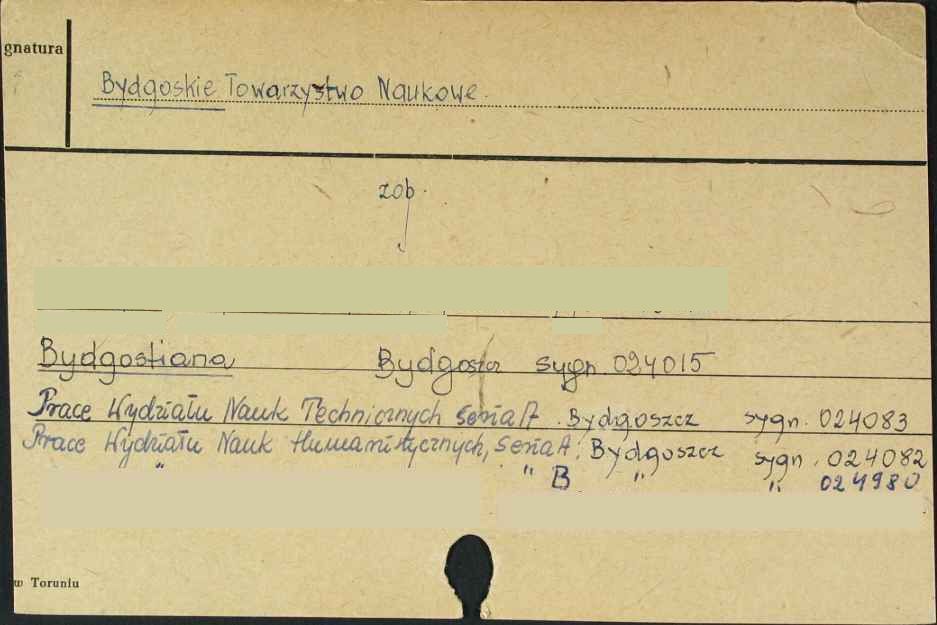 gnatura
Bydgoskie Towarzystwo Naukowe.
zob.
Bydgostiana Bydgoszcz sygn. 024015
Prace Wydziału Nauk Technicznych Seria A. Bydgoszcz sygn. 024083
Prace Wydziału Nauk Humanistycznych, Seria A. Bydgoszcz sygn. 024082
" " B " " 024980
w Toruniu